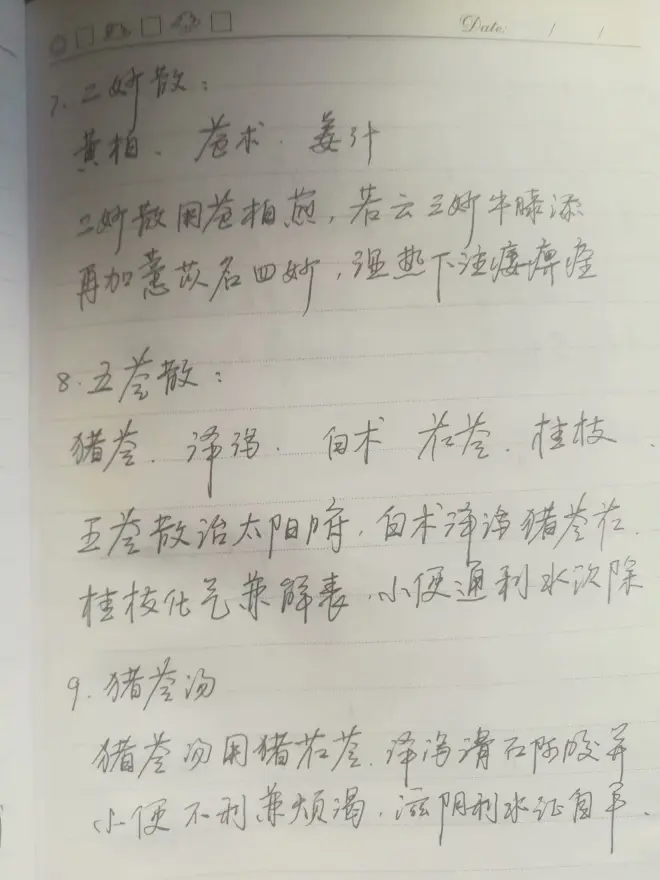 Date: / /
7. 二妙散:
黄柏、苍术、姜汁
二妙散用苍柏煎,若云三妙牛膝添
再加薏苡名四妙,湿热下注痿痹痊
8. 五苓散:
猪苓、泽泻、白术 茯苓、桂枝、
五苓散治太阳腑,白术泽泻猪苓茯、
桂枝化气兼解表、小便通利水饮除
9. 猪苓汤
猪苓汤用猪茯苓、泽泻滑石阿胶并
小便不利兼烦渴,滋阴利水证自平、